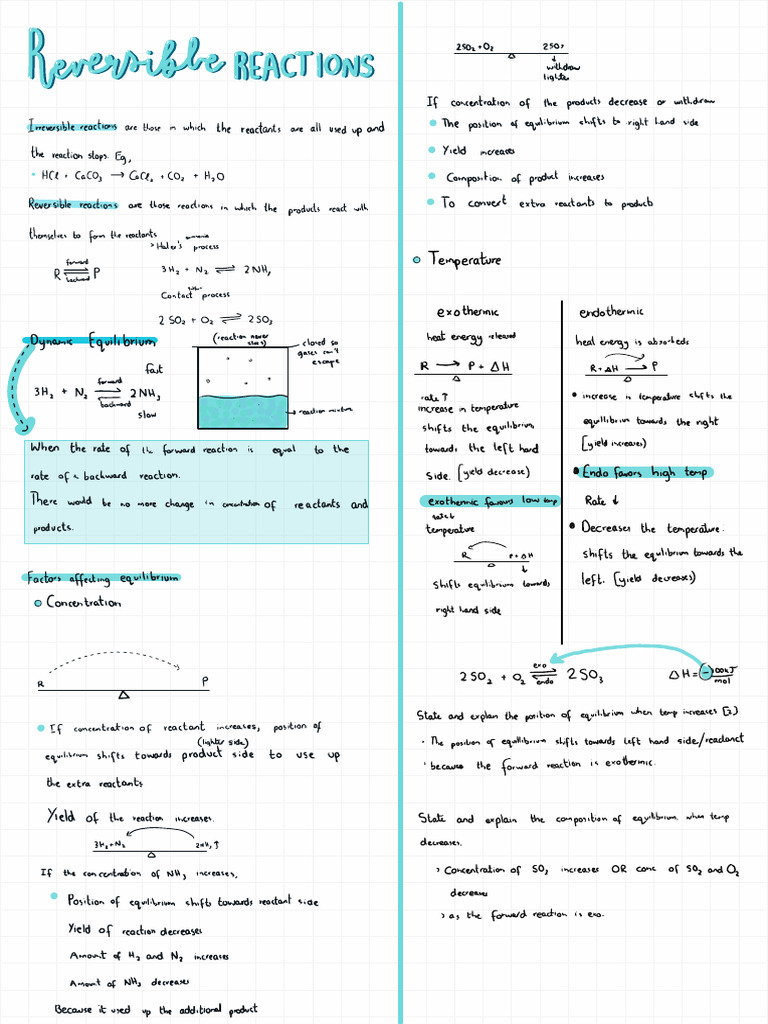 Reversible REACTIONS
Irreversible reactions are those in which the reactants are all used up and
the reaction stops. Eg,
• HCl + CaCO3 → CaCl2 + CO2 + H2O
Reversible reactions are those reactions in which the products react with
themselves to form the reactants
ammonia
> Haber's process
R forward backward P
3H2 + N2 ⇌ 2NH3
Contact process
2SO2 + O2 ⇌ 2SO3
Dynamic Equilibrium
fast
3H2 + N2 forward backward 2NH3
slow
(reaction never stops)
closed so
gases can't
escape
reaction mixture
When the rate of the forward reaction is equal to the
rate of a backward reaction.
There would be no more change in concentration of reactants and
products.
Factors affecting equilibrium
Concentration
R P
• If concentration of reactant increases, position of
(lighter side)
equilibrium shifts towards product side to use up
the extra reactants
Yield of the reaction increases.
3H2+N2 2NH3 ↑
If the concentration of NH3 increases,
• Position of equilibrium shift towards reactant side
Yield of reaction decreases
Amount of H2 and N2 increases
Amount of NH3 decreases
Because it used up the additional product
2SO2 + O2 2SO3
↓
withdraw
lighter
If concentration of the products decrease or withdraw
• The position of equilibrium shifts to right hand side
• Yield increases
• Composition of product increases
• To convert extra reactants to products
Temperature
exothermic
heat energy released
R → P + ΔH
rate ↑
increase in temperature
shifts the equilibrium
towards the left hand
side. (yield decrease)
exothermic favours low temp
rate ↓
temperature
R P + ΔH
↓
Shifts equilibrium towards
right hand side
endothermic
heat energy is absorbed
R + ΔH → P
• increase in temperature shifts the
equilibrium towards the right
(yield increases)
• Endo favors high temp
Rate ↓
• Decreases the temperature.
shifts the equilibrium towards the
left. (yield decreases)
2SO2 + O2 exo endo 2SO3 ΔH = -200kJ/mol
State and explain the position of equilibrium when temp increases [2]
• The position of equilibrium shifts towards left hand side/reactant
• because the forward reaction is exothermic.
State and explain the composition of equilibrium when temp
decreases.
> Concentration of SO3 increases OR conc of SO2 and O2
decreases
> as the forward reaction is exo.